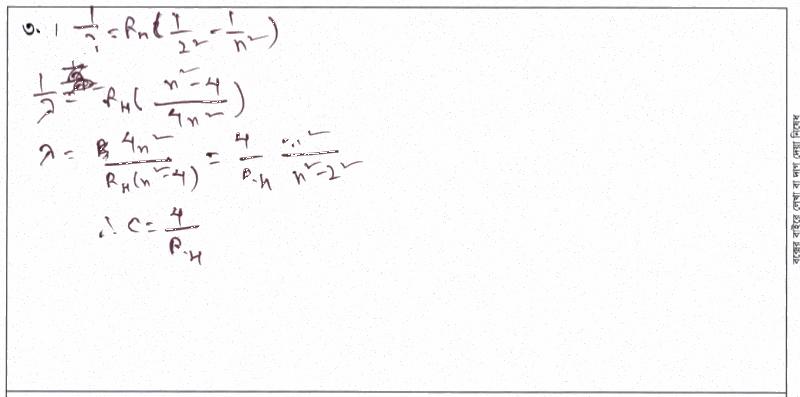 ৩. 1/λ = R_H (1/2² - 1/n²)
1/λ = R_H ( (n² - 4)/(4n²) )
λ = 4n²/(R_H (n² - 4)) = 4/R_H n²/(n² - 2²)
∴ C = 4/R_H
বক্সের বাইরে লেখা বা দাগ দেয়া নিষেধ